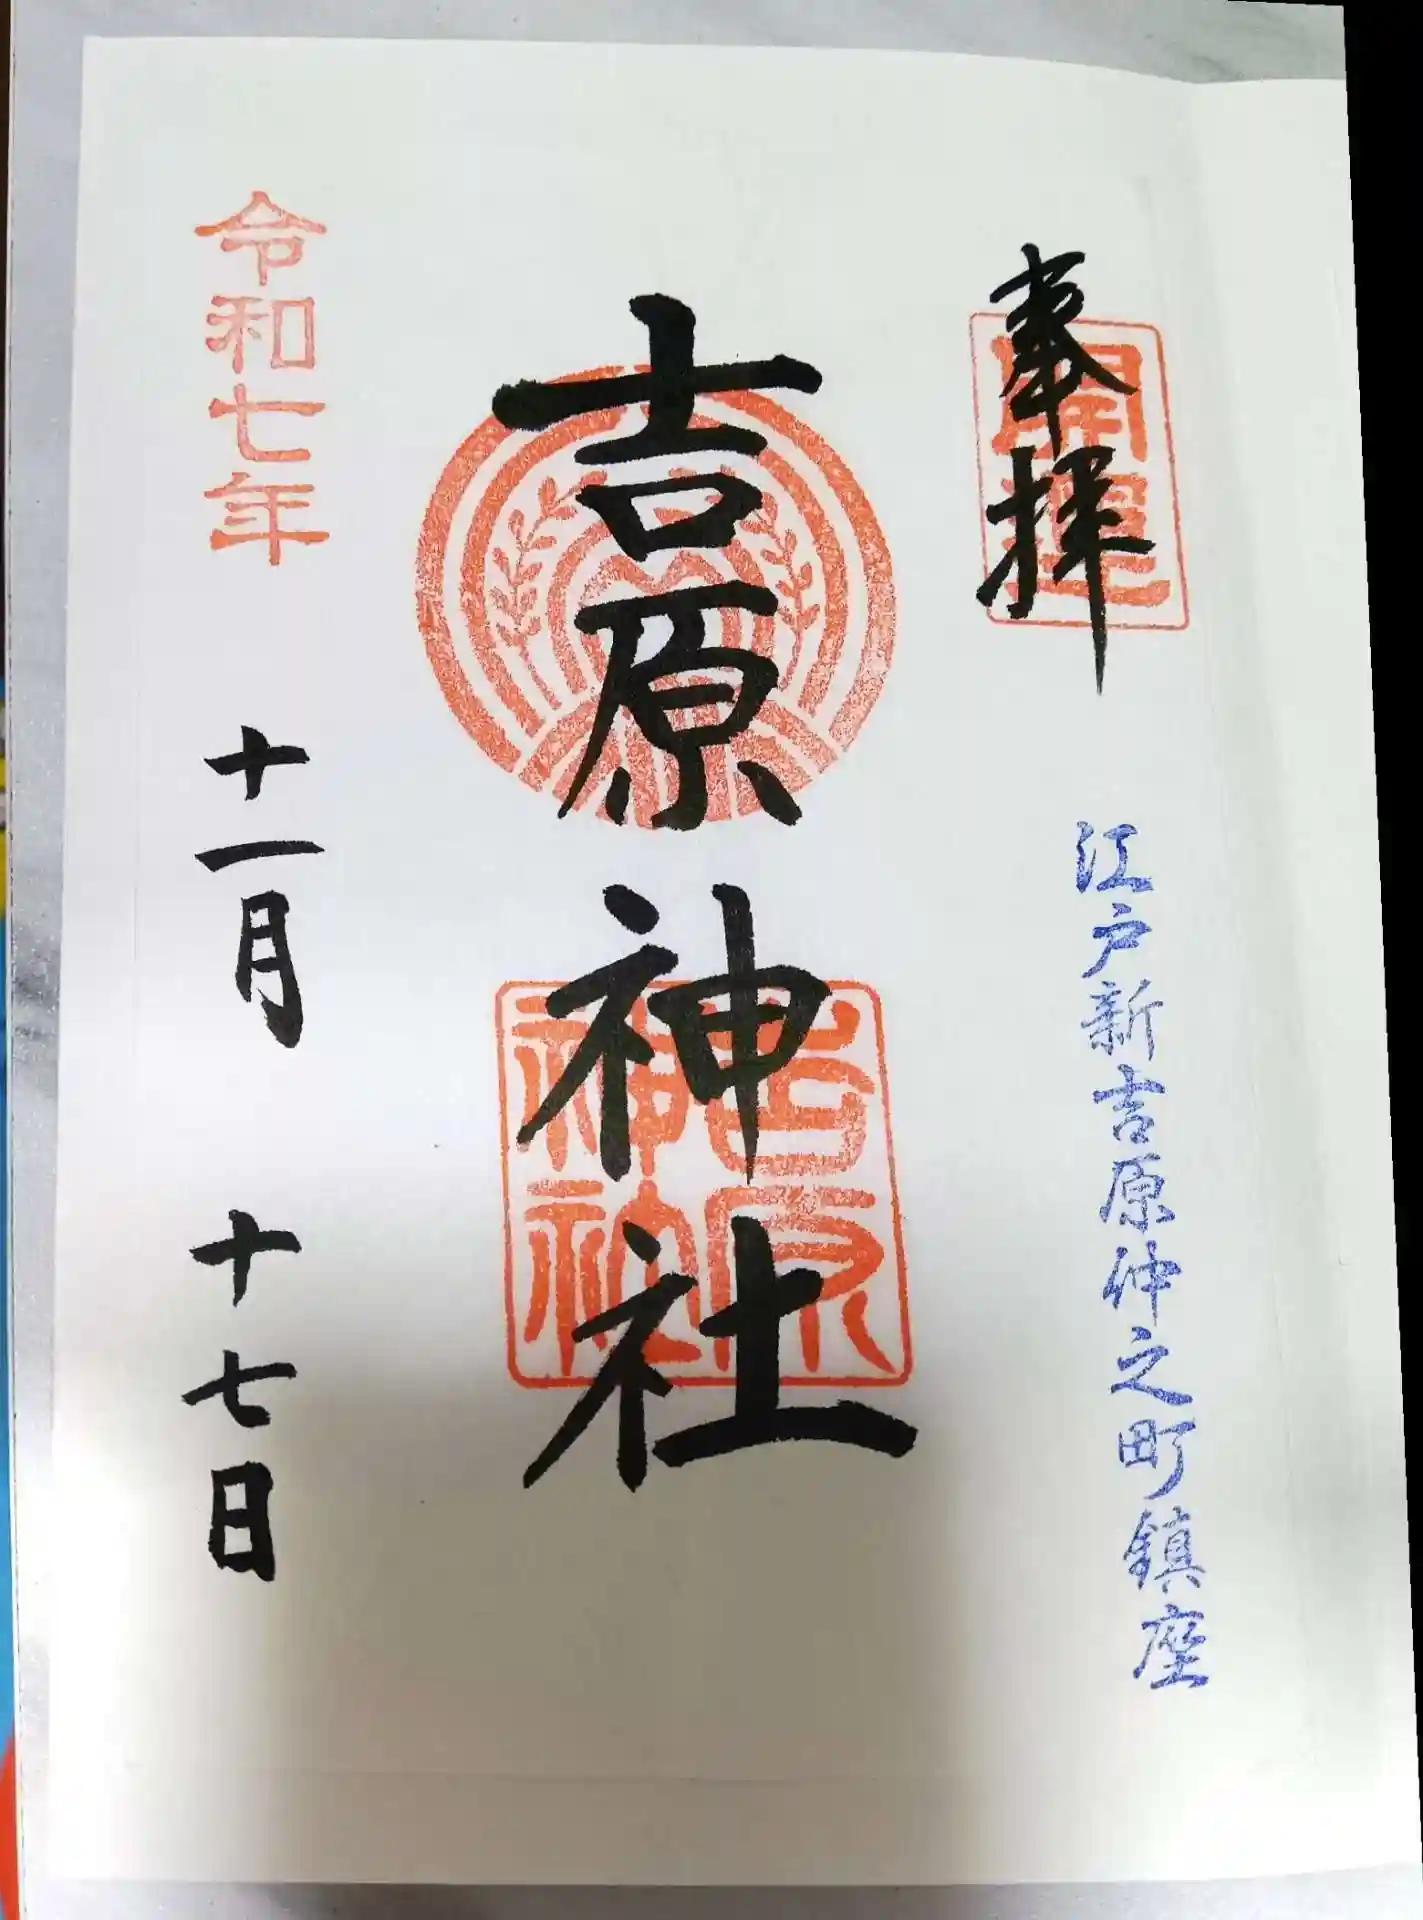 奉拝
開運
江戸新吉原仲之町鎮座
吉原神社
吉原
神社
令和七年
十一月
十七日